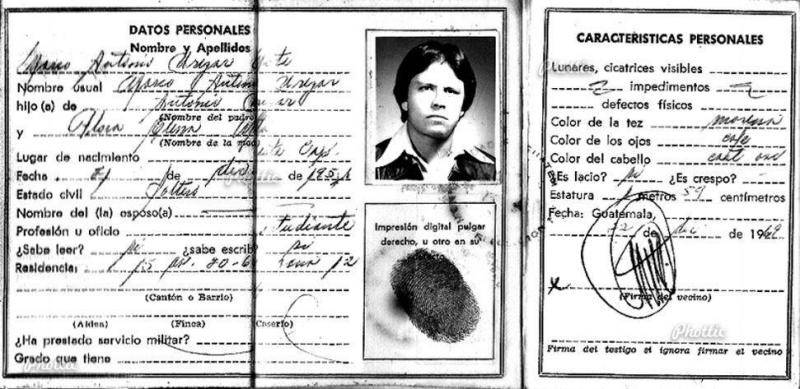 DATOS PERSONALES
Nombre y Apellidos
Marco Antonio
Nombre usual Marco Antonio
hijo(a) de Antonio
(Nombre del padre)
y Elena
(Nombre de la mad
Lugar de nacimiento
Fecha de de 195
Estado civil Soltero
Nombre del (la) esposo(a)
Profesión u oficio tudiante
¿Sabe leer? si ¿sabe escrib si
Residencia: Zona 12
(Cantón o Barrio)
(Aldea) (Finca) Caserío)
¿Ha prestado servicio militar?
Grado que tiene
Impresión digital pulgar
derecho, u otro en su
CARACTERISTICAS PERSONALES
Lunares, cicatrices visibles
impedimentos
defectos físicos
Color de la tez morena
Color de los ojos cafe
Color del cabello cast
¿Es lacio? si ¿Es crespo?
Estatura metros 59 centímetros
Fecha: Guatemala,
de dic de 19
(Firma del vecino)
Phottic
Firma del testigo si ignora firmar el vecino